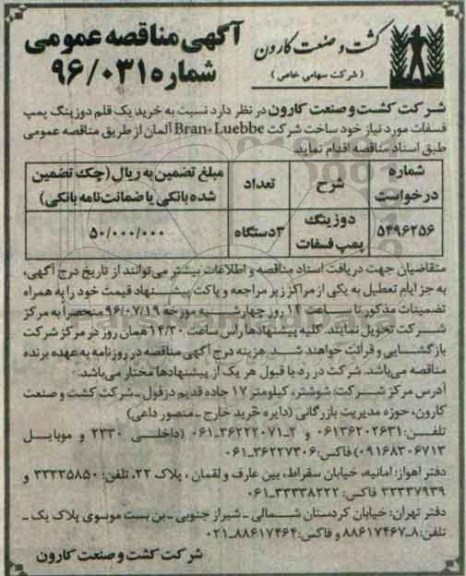 کشت و صنعت کارون
( شرکت سهامی خاص )
آگهی مناقصه عمومی
شماره ۹۶/۰۳۱
شرکت کشت و صنعت کارون در نظر دارد نسبت به خرید یک قلم دوزینگ پمپ
فسفات مورد نیاز خود ساخت شرکت Bran+Luebbe آلمان از طریق مناقصه عمومی
طبق اسناد مناقصه اقدام نماید.
شماره درخواست | شرح | تعداد | مبلغ تضمین به ریال (چک تضمین
شده بانکی یا ضمانت نامه بانکی)
۵۴۹۶۲۵۶ | دوزینگ پمپ فسفات | ۳دستگاه | ۵۰/۰۰۰/۰۰۰
متقاضیان جهت دریافت اسناد مناقصه و اطلاعات بیشتر می توانند از تاریخ درج آگهی،
به جز ایام تعطیل به یکی از مراکز زیر مراجعه و پاکت پیشنهاد قیمت خود را به همراه
تضمینات مذکور تا ساعت ۱۲ روز چهارشنبه مورخه ۹۶/۰۷/۱۹ منحصراً به مرکز
شرکت تحویل نمایند. کلیه پیشنهادها راس ساعت ۱۴/۳۰ همان روز در مرکز شرکت
بازگشایی و قرائت خواهند شد. هزینه درج آگهی مناقصه در روزنامه به عهده برنده
مناقصه می باشد. شرکت در رد یا قبول هر یک از پیشنهادها مختار می باشد.
آدرس مرکز شرکت: شوشتر، کیلومتر ۱۷ جاده قدیم دزفول ـ شرکت کشت و صنعت
کارون، حوزه مدیریت بازرگانی (دایره خرید خارج ـ منصور داعی)
تلفن: ۰۶۱۳۶۲۰۲۶۳۱ و ۲ـ۳۶۲۲۲۰۷۱ـ۰۶۱ (داخلی ۲۳۳۰ و موبایل
۰۹۱۶۸۳۰۶۷۱۳) فاکس: ۳۶۲۲۷۳۰۶ـ۰۶۱
دفتر اهواز: امانیه، خیابان سقراط، بین عارف و لقمان ، پلاک ۲۲، تلفن: ۳۳۳۳۵۸۵۰ و
۳۳۳۳۷۹۳۹ فاکس: ۳۳۳۳۸۲۲۲ـ۰۶۱
دفتر تهران: خیابان کردستان شمالی ـ شیراز جنوبی ـ بن بست موسوی پلاک یک ـ
تلفن: ۸ـ۸۸۶۱۷۴۶۷ و فاکس: ۸۸۶۱۷۴۶۴ـ۰۲۱
شرکت کشت و صنعت کارون